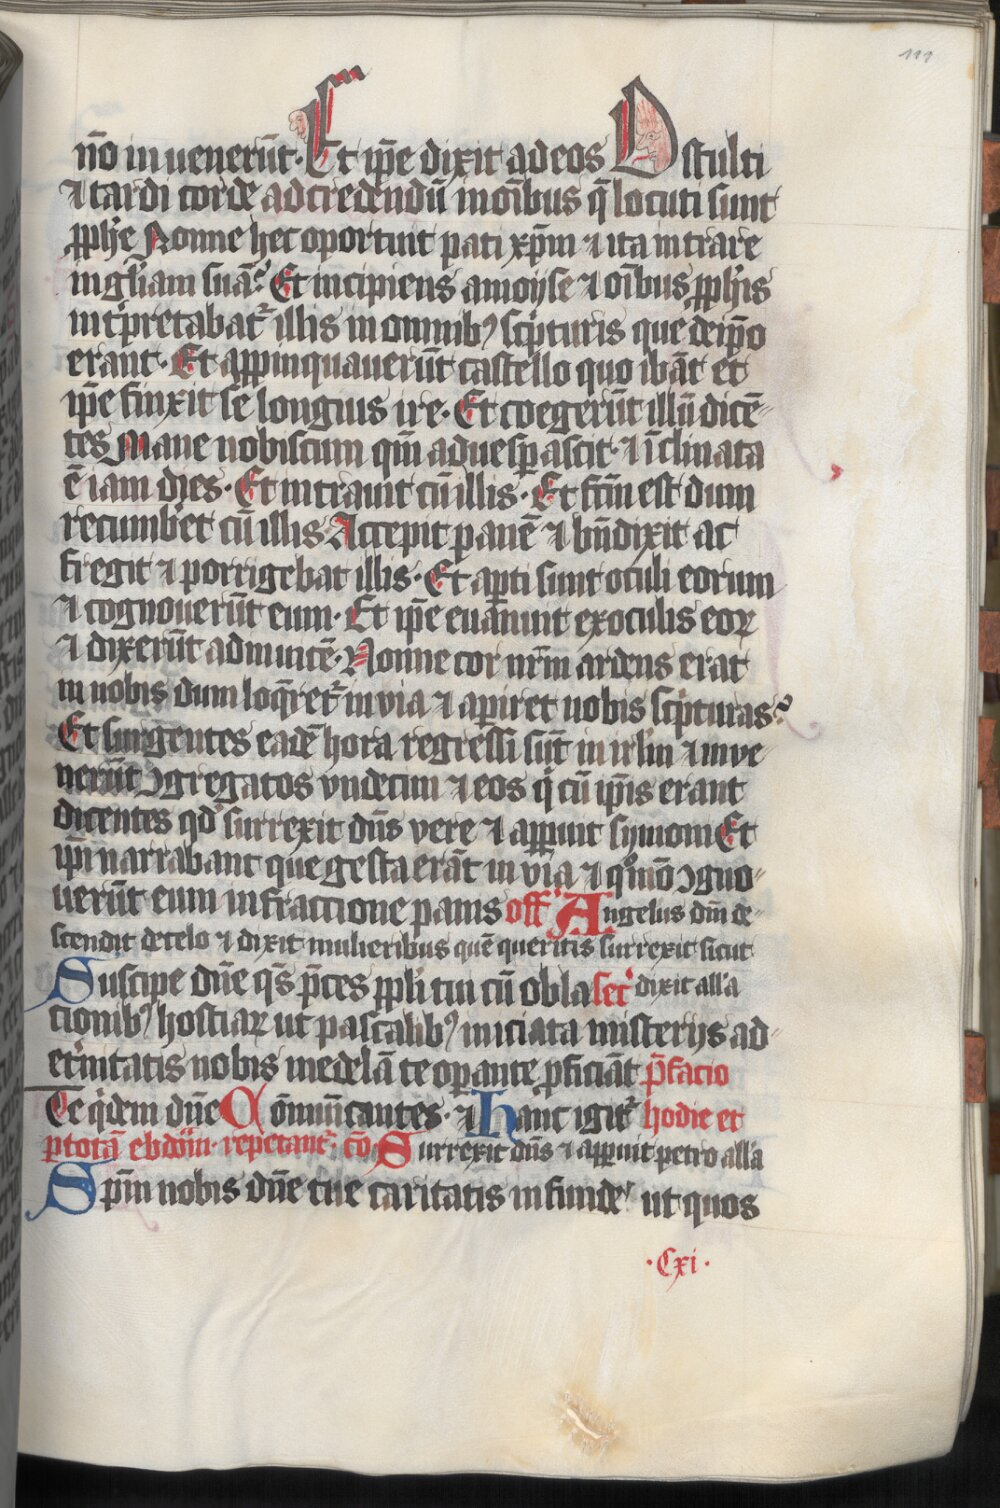 111
nō inuenerūt. Et ip̄e dixit ad eos O stulti
⁊ tardi corde ad credendū in oībus q̄ locuti sunt
ꝓph̄e Nonne hec oportuit pati xp̄m ⁊ ita intrare
in gl̄iam suā? Et incipiens a moyse ⁊ oībus ꝓph̄is
int̄pretabat᷑ illis in omnibꝰ sc̄pturis que de ip̄o
erant. Et appīnquauerūt castello quo ibāt et
ip̄e finxit se longius ire. Et coegerūt illū dicē-
tes Mane nobiscum qm̄ aduesꝑascit. ⁊ īclinata
ē iam dies. Et intrauit cū illis. Et fc̄m est dum
recumbēt cū illis Accepit panē ⁊ bn̄dixit ac
fregit ⁊ porrigebat illis. Et aꝑti sunt oculi eorum
⁊ cognouerūt eum. Et ip̄e euanuit ex oculis eoꝝ
⁊ dixerūt ad inuicē. Nonne cor nr̄m ardens erat
in nobis dum loq̄ret᷑ in via ⁊ aꝑiret nobis sc̄pturas?
Et surgentes eadē hora regressi sūt in irl̄m ⁊ inve-
nerūt ꝯgregatos vndecim ⁊ eos q̄ cū ip̄is erant
dicentes qd̄ surrexit dn̄s vere ⁊ apꝑuit symoni Et
ip̄i narrabant que gesta erāt in via ⁊ qūo ꝯgno-
uerūt eum in fractione panis off̄ Angelus dn̄i de-
scendit de celo ⁊ dixit mulieribus quē queritis surrexit sicut
Suscipe dn̄e q̄s p̄ces ppl̄i tui cū obla sec̄ dixit all̄a
cionibꝰ hostiaꝝ ut pascalibꝰ iniciata misterijs ad
et̄nitatis nobis medelā te oꝑante ꝓficiāt p̄facio
Te q̄dem dn̄e Cōmūicantes. ⁊ Hanc igit᷑ hodie et
ꝑ totā ebdōm. repetant᷑. cō Surrexit dn̄s ⁊ apꝑuit petro all̄a
Spm̄ nobis dn̄e tue caritatis infunde ut quos
.Cxi.